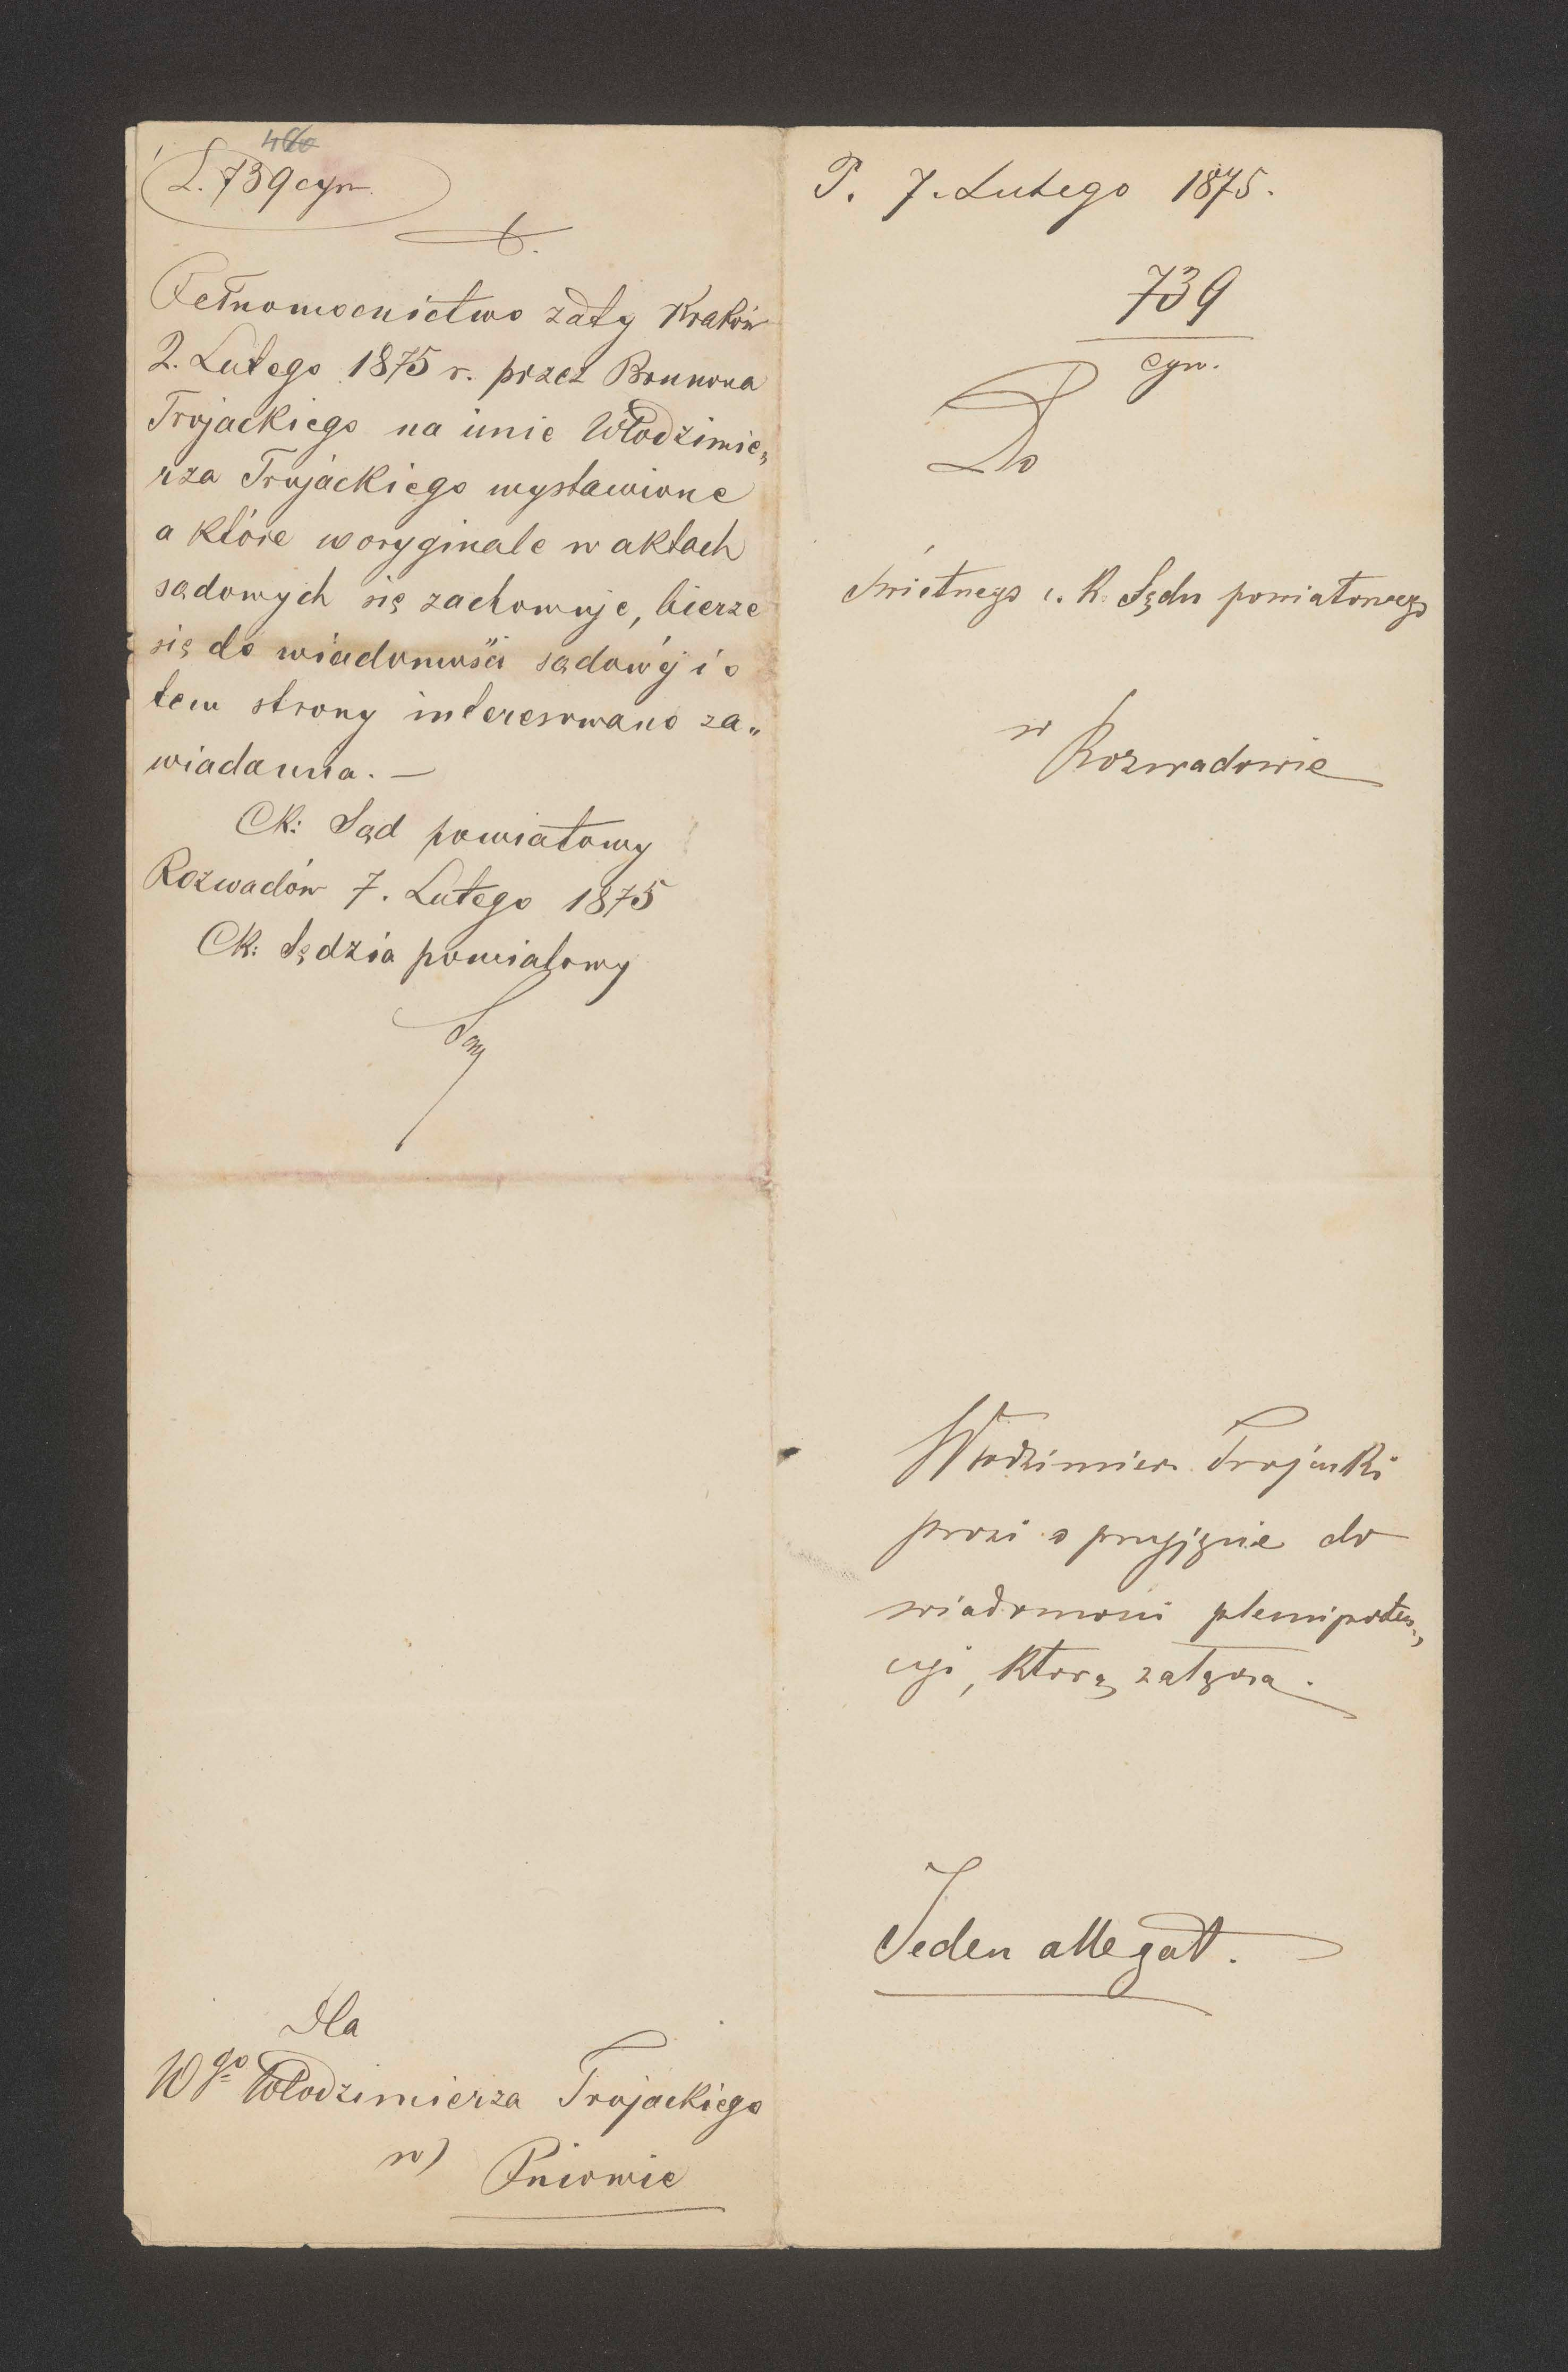 L. 739 cyw.
Pełnomocnictwo z daty Kraków
2. Lutego 1875 r. przez Brunona
Trojackiego na imie Włodzimie„
rza Trojackiego wystawione
a które w oryginale w aktach
sądowych się zachowuje, bierze
się do wiadomości sądowéj i o
tem strony interesowane za„
wiadamia. —
CK: Sąd powiatowy
Rozwadów 7. Lutego 1875
CK: Sędzia powiatowy
Dla
Wgo Włodzimierza Trojackiego
w
Pniowie
P. 7. Lutego 1875.
739
cyw.
Do
Świetnego c. K. Sędu powiatowego
w
Rozwadowie
Włodzimierz Trojacki
prosi o przyjęcie do
wiadomości plenipoten„
cyi, którą załącza.
Jeden allegat.